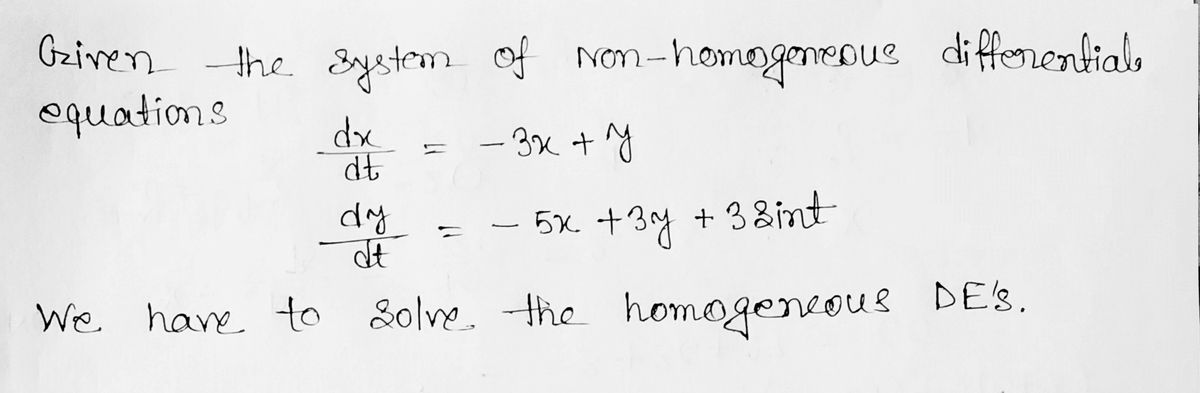 Given the system of Non-homogeneous differential
equations
dx/dt = -3x + y
dy/dt = -5x + 3y + 3 sint
We have to solve the homogeneous DE's.